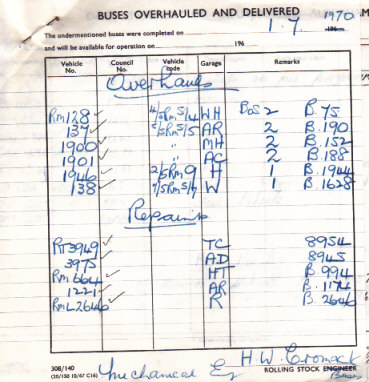 BUSES OVERHAULED AND DELIVERED
The undermentioned buses were completed on 1.7. 1970 196
and will be available for operation on 196
Vehicle No. Council No. Vehicle code Garage Remarks
Overhauls
RM 128 ✓ 4/5RM5/4 WH Bos 2 B.75
137 ✓ 5/5RM5/5 AR 2 B.190
1900 ✓ " MH 2 B.152
1901 ✓ " AC 2 B.188
1946 ✓ 2/5RM9 H 1 B.1944
138 ✓ W 1 B.1628
Repaints
RT3949 ✓ TC 8954
3975 ✓ AD 8945
RM 664 ✓ HT B.994
1221 ✓ AR B.1174
RML2646 ✓ R B.2646
308/140
(20/150 10/67 C16)
Mechanical Eg H.W. Cromack
ROLLING STOCK ENGINEER
Buses